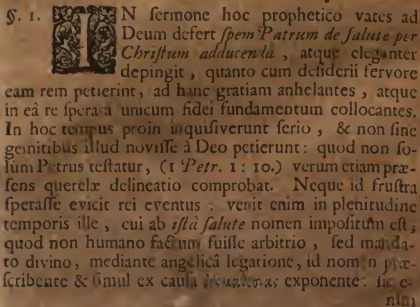 §. 1. IN ſermone hoc prophetico vates ad
Deum defert ſpem Patrum de ſalute per
Chriſtum adducenda, atque eleganter
depingit, quanto cum deſiderii fervore
eam rem petierint, ad hanc gratiam anhelantes, atque
in eâ re ſpera a unicum fidei fundamentum collocantes.
In hoc tempus proin inquiſiverunt ſerio, & non ſine
gemitibus illud noviſſe à Deo petierunt: quod non ſo-
lum Petrus teſtatur, (1 Petr. 1: 10.) verum etiam præ-
ſens querelæ delineatio comprobat. Neque id fruſtra
ſperaſſe evicit rei eventus: venit enim in plenitudine
temporis ille, cui ab iſtâ ſalute nomen impoſitum eſt;
quod non humano factum fuiſſe arbitrio, ſed manda-
to divino, mediante angelicâ legatione, id nomen præ-
ſcribente & ſimul ex cauſa exponente: ſic e-
nim